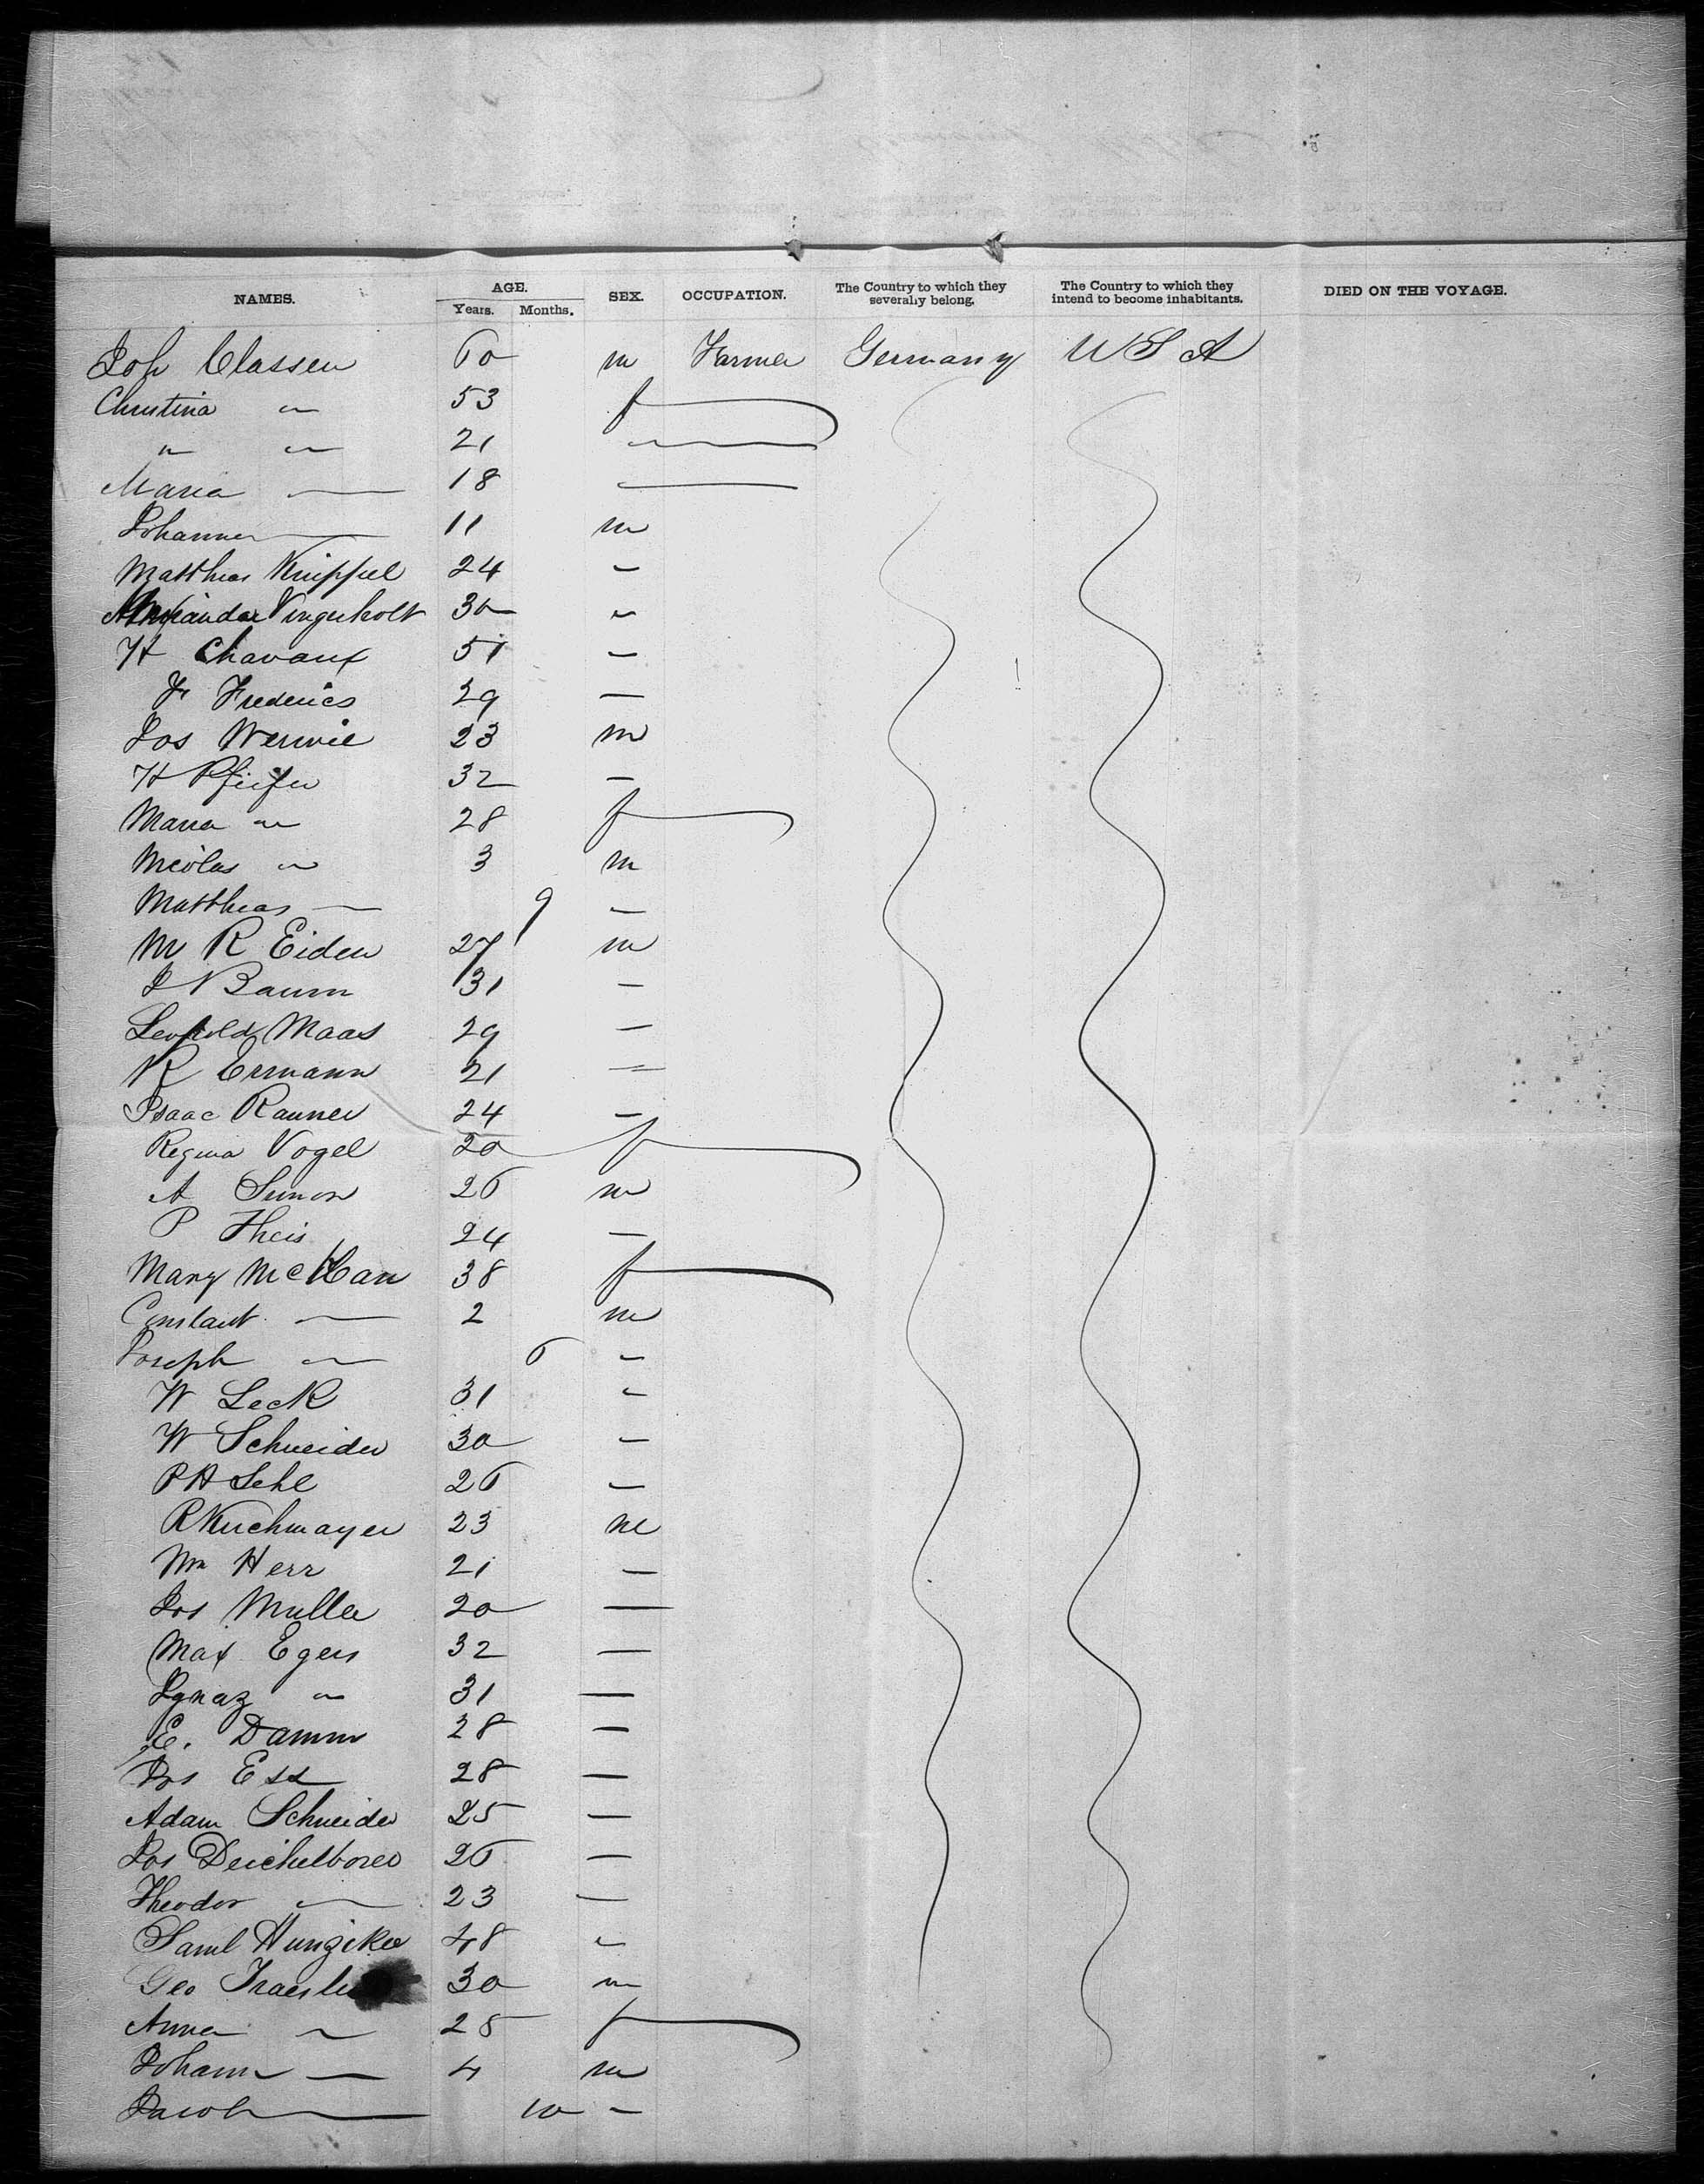 NAMES. AGE. SEX. OCCUPATION. The Country to which they severally belong. The Country to which they intend to become inhabitants. DIED ON THE VOYAGE.
Years. Months.
Joh Classen 60 m Farmer Germany U S A
Christina " 53 f
" " 21 "
Maria — 18 —
Johannes — 11 m
Matthias Knippel 24 —
30 "
H Chavant 51 —
Fr Frederics 29 —
Jos Wermie 23 m
H Pfeifer 32 —
Maria " 28 f
Nicolas " 3 m
Matthias — 9 —
M R Eiden 27 m
J Baum 31 —
Leopold Maas 29 —
R Ermann 21 =
Isaac Rauner 24 —
Regina Vogel 20 f
A Simon 26 m
P Theis 24 —
Mary Mc 38 f
Constant — 2 m
Joseph " 6 —
W Leck 31 "
W Schneider 30 —
P H Sehl 26 —
R Kirchmayer 23 m
Wm Herr 21 —
Jos Muller 20 —
Max Egers 32 —
Ignaz " 31 —
E. Damm 28 —
Jos Ess 28 —
Adam Schneider 25 —
Jos Deichelborer 26 —
Theodor " 23 —
Saml Hunziker 48 "
Geo 30 m
Anna " 25 f
Johann — 4 m
Jacob — 10 —